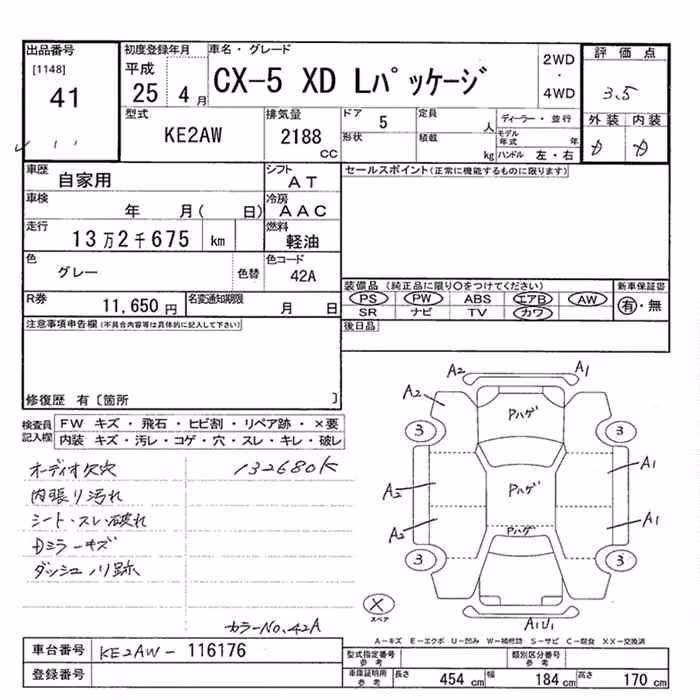 出品番号
[1148]
41
初度登録年月
平成
25 4月
車名・グレード
CX-5 XD Lパッケージ
2WD
・
4WD
評価点
3.5
外装 内装
型式
KE2AW
排気量
2188
CC
ドア
5
形状
定員
人
積載
kg
ディーラー・並行
モデル年式 年
ハンドル 左・右
車歴
自家用
シフト
AT
車検
年 月( 日)
冷房
AAC
走行
13万2千675 km
燃料
軽油
色
グレー
色替
色コード
42A
R券
11,650円
名変通知期限
月 日
セールスポイント(正常に機能するものに限ります)
装備品 (純正品に限り○をつけてください)
PS PW ABS エアB AW
SR ナビ TV カワ
新車保証書
有・無
後日品
注意事項申告欄(不具合内容等は具体的に記入して下さい)
修復歴 有〔箇所 〕
検査員記入欄
FW キズ・飛石・ヒビ割・リペア跡・×要
内装 キズ・汚レ・コゲ・穴・スレ・キレ・破レ
オーディオ欠穴
132680K
内張り汚れ
シート・スレ破れ
Dミラーキズ
ダッシュノリ跡
カラーNo,42A
A2 A1
A2
Pハゲ
3 3
A2 Pハゲ A1
A2 Pハゲ A1
3 3
×
スペア
A1U1
A−キズ E−エクボ U−凹み W−補修跡 S−サビ C−腐食 XX−交換済
車台番号
KE2AW-116176
登録番号
型式指定番号
参考
類別区分番号
参考
車庫証明用
参考
長さ 454 cm 幅 184 cm 高さ 170 cm